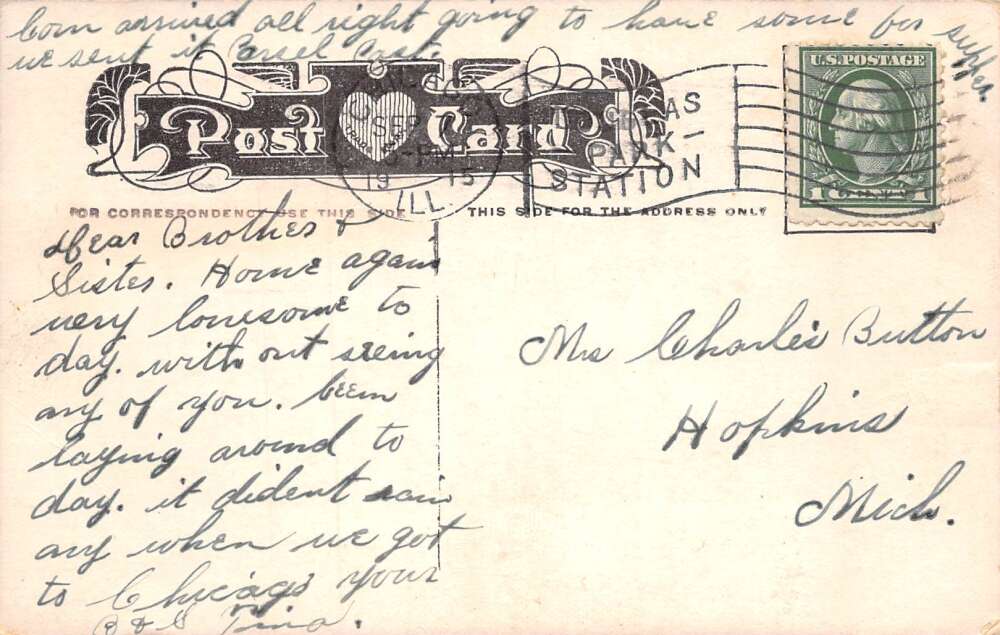 Corn arrived all right going to have some for supper.
we sent it Parsel Post.
Post Card
SEP
5-PM
19 15
ILL.
PARK-
STATION
U.S. POSTAGE
1 CENT 1
FOR CORRESPONDENCE USE THIS SIDE
THIS SIDE FOR THE ADDRESS ONLY
Dear Brother &
Sister. Home again
very lonesome to
day. with out seeing
any of you. been
laying around to
day. it dident rain
any when we got
to Chicago your
B & S Tina.
Mrs Charlie Button
Hopkins
Mich.